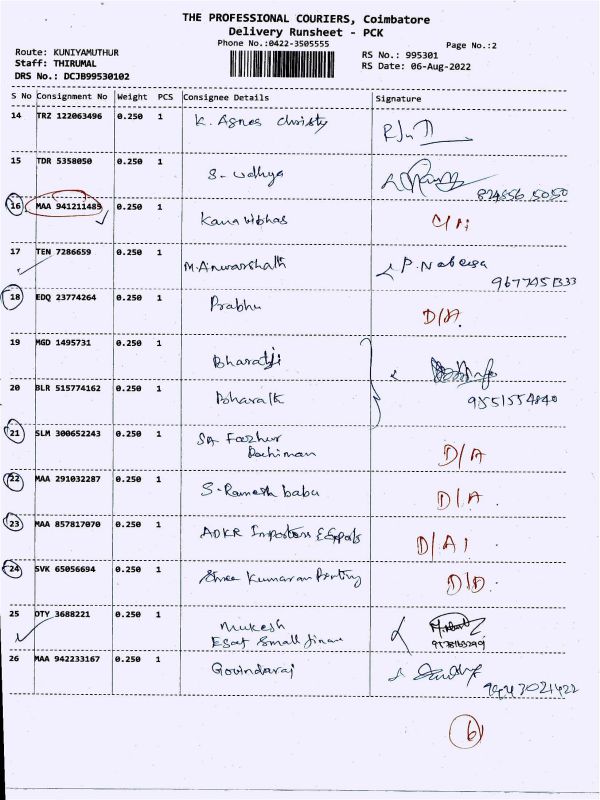 THE PROFESSIONAL COURIERS, Coimbatore
Delivery Runsheet - PCK
Phone No.:0422-3505555
Page No.:2
Route: KUNIYAMUTHUR
RS No.: 995301
Staff: THIRUMAL
RS Date: 06-Aug-2022
DRS No.: DCJB99530102
S No Consignment No Weight PCS Consignee Details Signature
14 TRZ 122063496 0.250 1 K. Agnes Christy
15 TDR 5358050 0.250 1 S- Vidhya
16 MAA 941211485 0.250 1 Kana Vibhas
17 TEN 7286659 0.250 1 M.Anwarshath P. Nabeesa
18 EDQ 23774264 0.250 1 Prabhu D/A.
19 MGD 1495731 0.250 1 Bharatji
20 BLR 515774162 0.250 1 9551554840
21 SLM 300652243 0.250 1 D/A
22 MAA 291032287 0.250 1 S-Ramesh babu D/A.
23 MAA 857817070 0.250 1 ADKR Importers & Exports D/A
24 SVK 65056694 0.250 1 Shree Kumaran D/D.
25 DTY 3688221 0.250 1 Mukesh
Esaf Small
26 MAA 942233167 0.250 1 Govindaraj
6